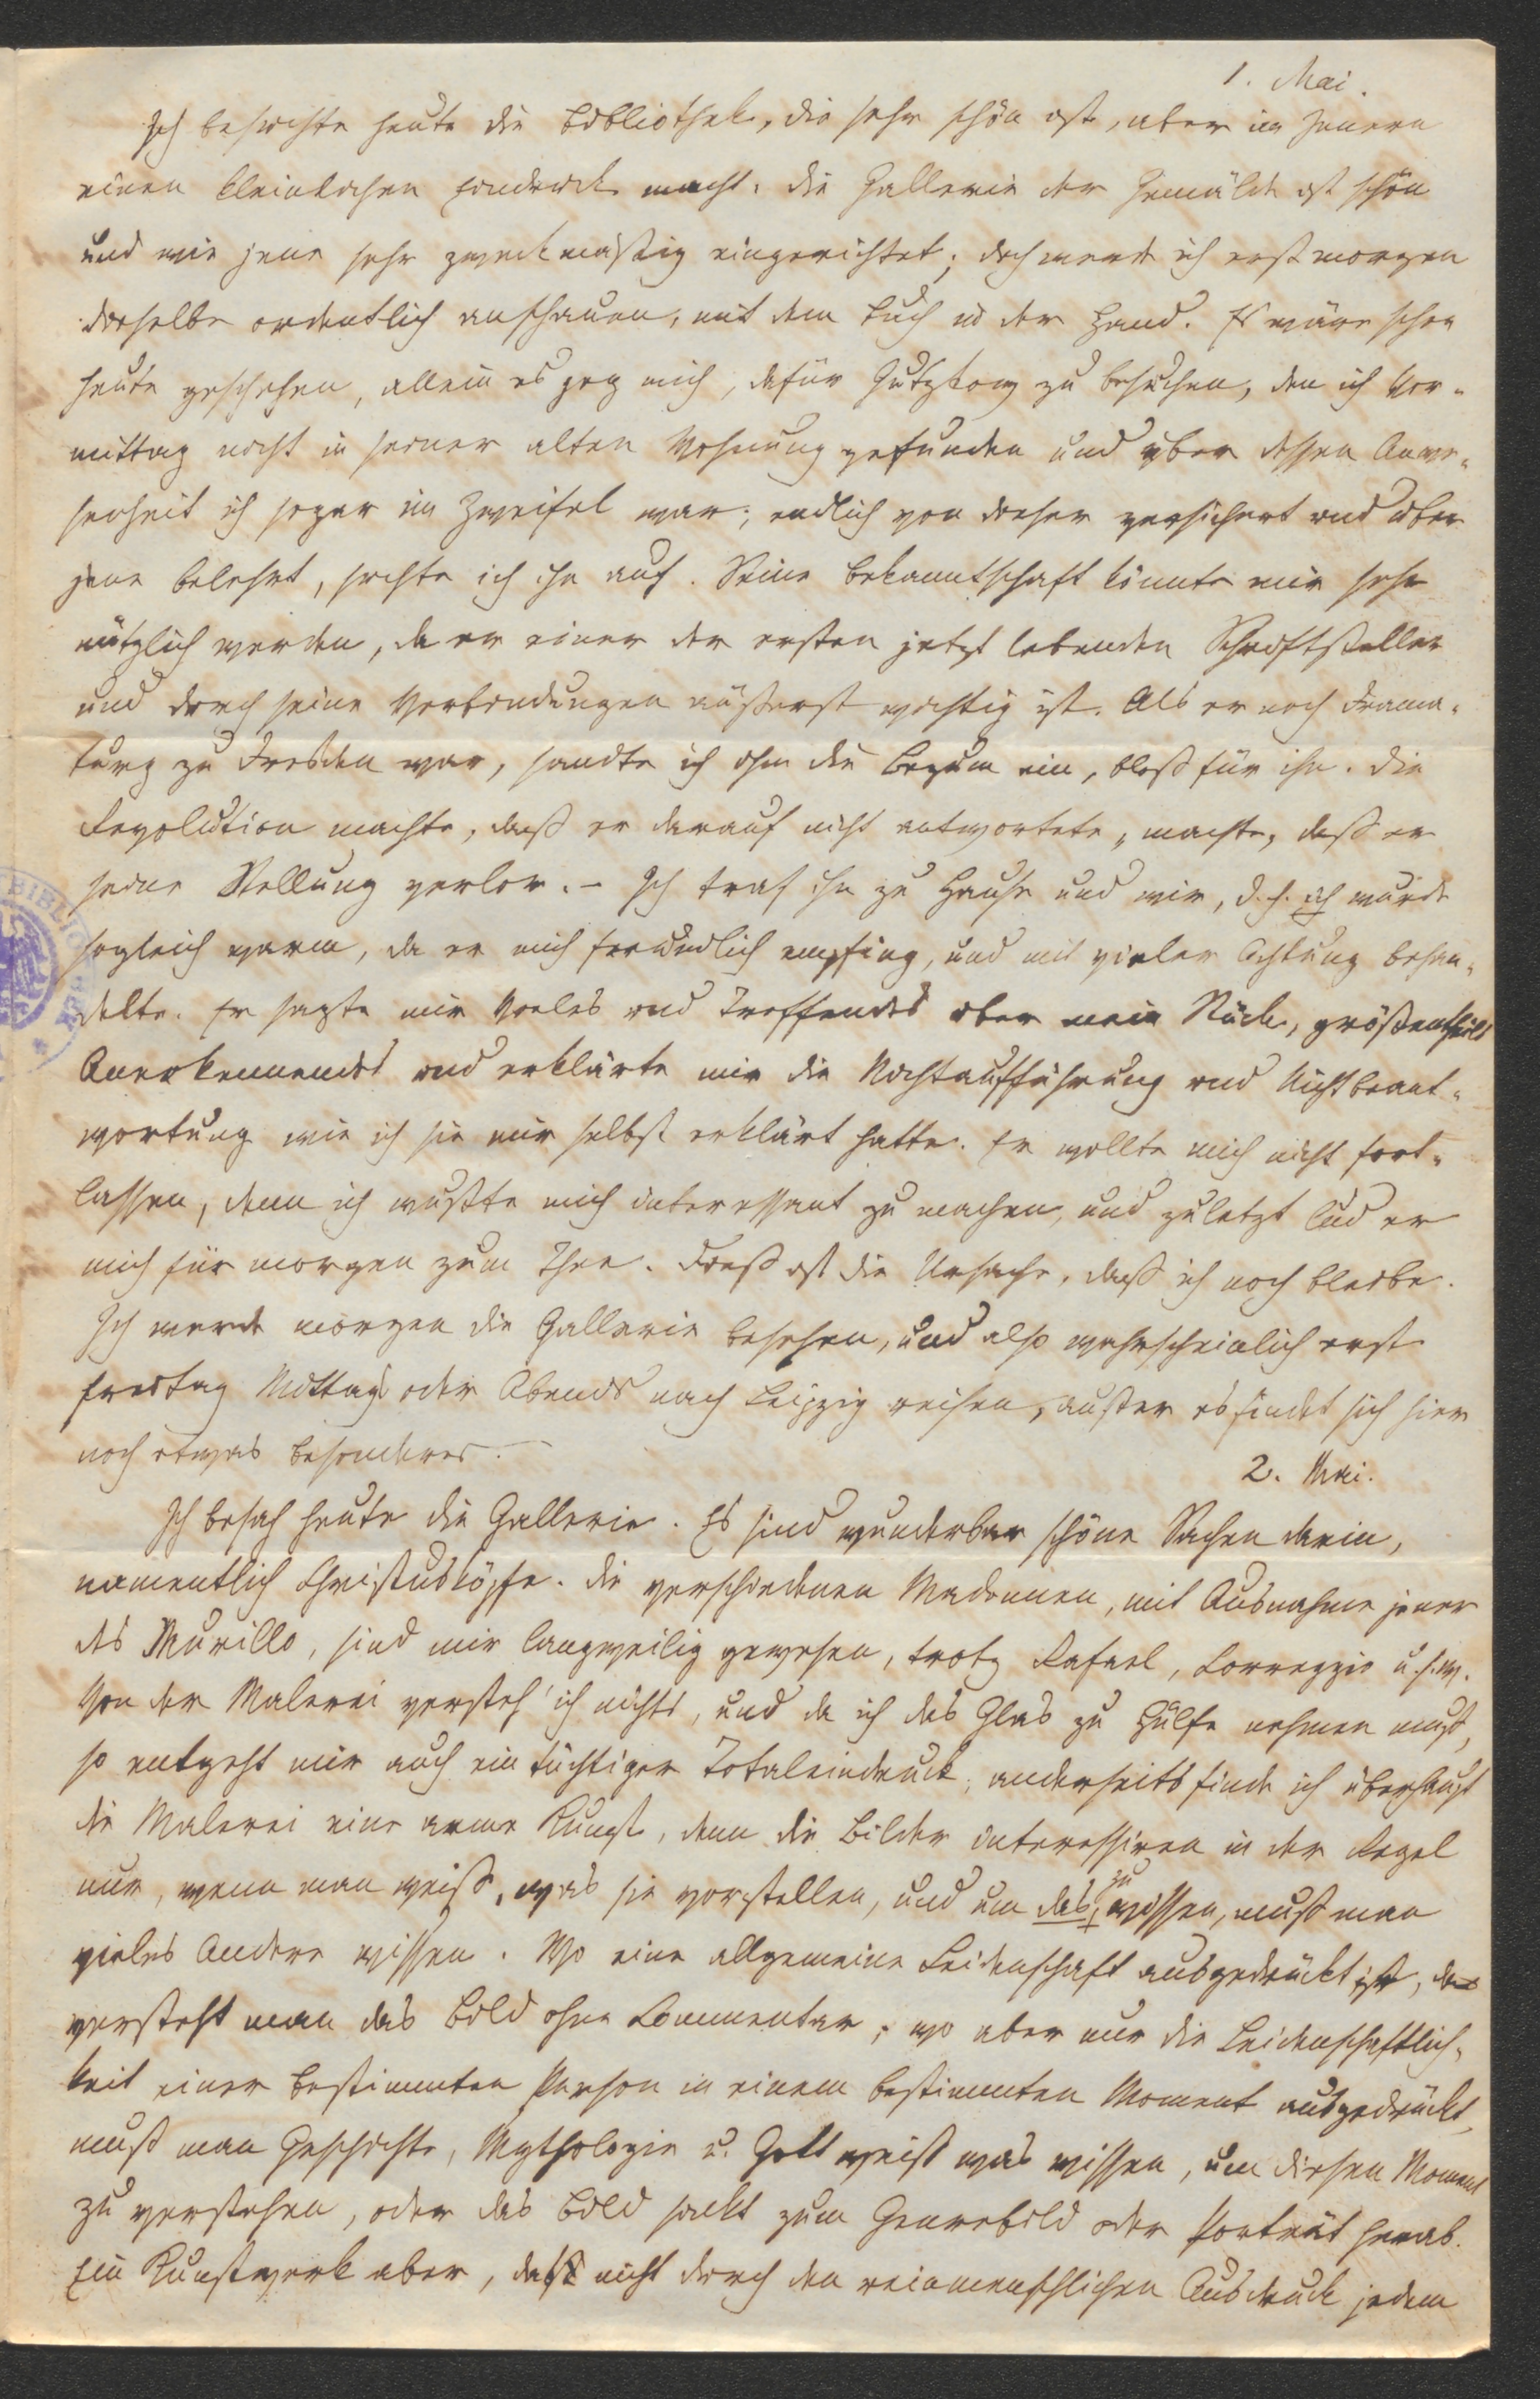 1. Mai.
Ich besuchte heute die Bibliothek, die sehr schön ist, aber im Innern
einen kleinlichen Eindruck macht. Die Gallerie der Gemälde ist schön
und wie jene sehr zweckmäßig eingerichtet; doch werde ich erst morgen
dieselbe ordentlich anschauen, mit dem Buch in der Hand. Es wäre schon
heute geschehen, allein es zog mich, dafür Gutzkow zu besuchen, den ich Vor-
mittag nicht in seiner alten Wohnung gefunden und über dessen Anwe-
senheit ich sogar im Zweifel war; endlich von dieser versichert und über
jene belehrt, suchte ich ihn auf. Seine Bekanntschaft könnte mir sehr
nützlich werden, da er einer der ersten jetzt lebenden Schriftsteller
und durch seine Verbindungen äußerst wichtig ist. Als er noch Drama-
turg zu Dresden war, sandte ich ihm die Begum ein, bloß für ihn. Die
Revolution machte, daß er darauf nicht antwortete, machte, daß er
seine Stellung verlor. – Ich traf ihn zu Hause und wir, d. h. ich wurde
sogleich warm, da er mich freundlich empfing, und mit vieler Achtung behan-
delte. Er sagte mir Vieles und Treffendes über mein Stück, größentheils
Anerkennendes und erklärte mir die Nichtaufführung und Nichtbeant-
wortung wie ich sie mir selbst erklärt hatte. Er wollte mich nicht fort-
lassen, denn ich wußte mich interessant zu machen, und zuletzt lud er
mich für morgen zum Thee. Dieß ist die Ursache, daß ich noch bleibe.
Ich werde morgen die Gallerie besehen, und also wahrscheinlich erst
Freitag Mittags oder Abends nach Leipzig reisen, außer es findet sich hier
noch etwas besonderes. –
2. Mai.
Ich besah heute die Gallerie. Es sind wunderbar schöne Sachen darin,
namentlich Christusköpfe. Die verschiedenen Madonnen, mit Ausnahme jener
des Murillo, sind mir langweilig gewesen, trotz Rafael, Correggio u.s.w.
Von der Malerei versteh' ich nichts, und da ich das Glas zu Hülfe nehmen muß,
so entgeht mir auch ein tüchtiger Totaleindruck; anderseits finde ich überhaupt
die Malerei eine arme Kunst, denn die Bilder interessiren in der Regel
nur, wenn man weiß, was sie vorstellen, und um das zu wissen, muß man
vieles Andere wissen. Wo eine allgemeine Leidenschaft ausgedrückt ist, da
versteht man das Bild ohne Commentar; wo aber nur die Leidenschaftlich-
keit einer bestimmten Person in einem bestimmten Moment ausgedrückt,
muß man Geschichte, Mythologie u. Gott weiß was wissen, um diesen Moment
zu verstehen, oder das Bild sinkt zum Genrebild oder Porträt herab.
Ein Kunstwerk aber, daß nicht durch den reinmenschlichen Ausdruck jedem